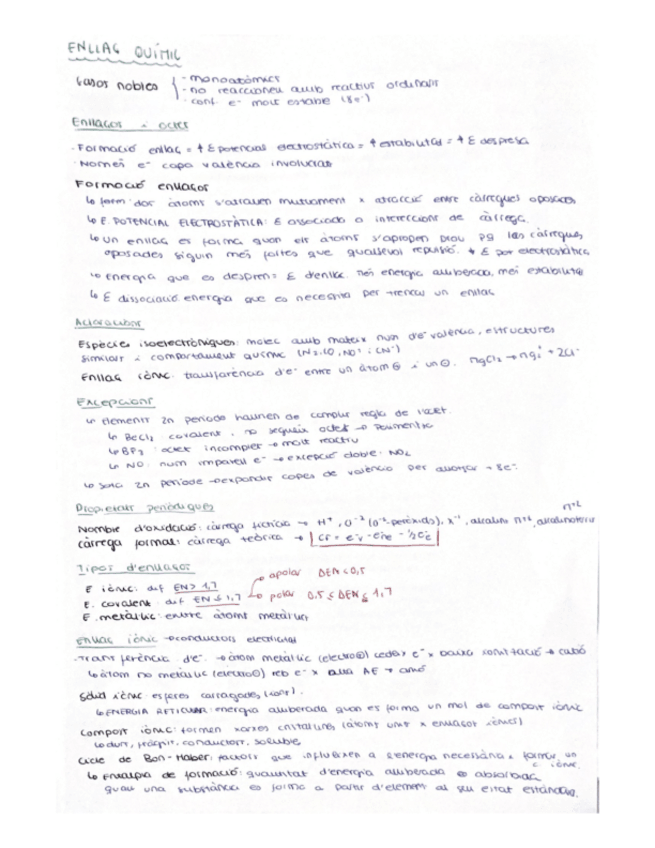 ENLLAÇ QUÍMIC
Gasos nobles { - monoatòmics
- no reaccionen amb reactius ordinaris
- conf. e⁻ molt estable (8e⁻)
Enllaços i octet
- Formació enllaç = ↓ E potencial electrostàtica = ↑ estabilitat = ↑ E despresa
- Només e⁻ capa valència involucrats
Formació enllaços
↳ form: dos àtoms s'atrauen mutuament x atracció entre càrregues oposades
↳ E. POTENCIAL ELECTROSTÀTICA: E associada a interaccions de càrrega.
↳ un enllaç es forma quan els àtoms s'apropen prou pq les càrregues
oposades siguin més fortes que qualsevol repulsió. ↓ E pot electrostàtica
↳ energia que es desprèn = E d'enllaç. més energia alliberada, més estabilitat
↳ E dissociació energia que es necessita per trencar un enllaç
Aclaracions
Espècies isoelectròniques: molec amb mateix num de valència, estructures
similars i comportament químic (N₂, CO, NO⁺ i CN⁻)
Enllaç iònic: transferència d'e⁻ entre un àtom ⊕ i un ⊖. MgCl₂ → Mg + 2Cl⁻
Excepcions
↳ elements 2n període haurien de complir regla de l'octet.
↳ BeCl₂: covalent, no segueix octet →
↳ BF₃: octet incomplet → molt reactiu
↳ NO: num imparell e⁻ → excepció doble: NO₂
↳ Sota 2n període → expandir capes de valència per allotjar + 8e⁻
Propietats periòdiques
n+2
Nombre d'oxidació: càrrega fictícia → H⁺, O⁻² (O⁻¹-peròxids), X⁻¹, alcalins n+1, alcalinoterris
càrrega formal: càrrega teòrica → CF = e⁻v - e⁻ne - ½e⁻c
Tipos d'enllaços
apolar ΔEN < 0,5
E iònic: dif EN > 1,7
E. covalent: dif EN ≤ 1,7 polar 0,5 ≤ ΔEN ≤ 1,7
E metàl·lic: entre àtoms metàl·lics
Enllaç iònic → conductors electricitat
- Transferència d'e⁻ → àtom metàl·lic (electro⊕) cedeix e⁻ x baixa ionització → catió
↳ àtom no metàl·lic (electro⊖) reb e⁻ x alta AE → anió
Sòlid iònic: esferes carregades (ions).
↳ ENERGIA RETICULAR: energia alliberada quan es forma un mol de compost iònic
Compost iònic: formen xarxes cristal·lines (àtoms units x enllaços iònics)
↳ durs, fràgils, conductors, solubles
Cicle de Born-Haber: factors que influeixen a s'energia necessària x formar un
c. iònic.
↳ Entalpia de formació: quantitat d'energia alliberada o absorbida
quan una substància es forma a partir d'elements al seu estat estàndar.